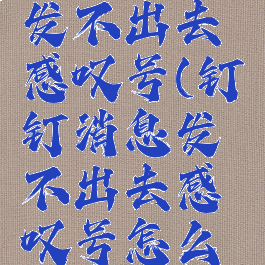 发不出去
感叹号(钉
钉消息发
不出去感
叹号怎么